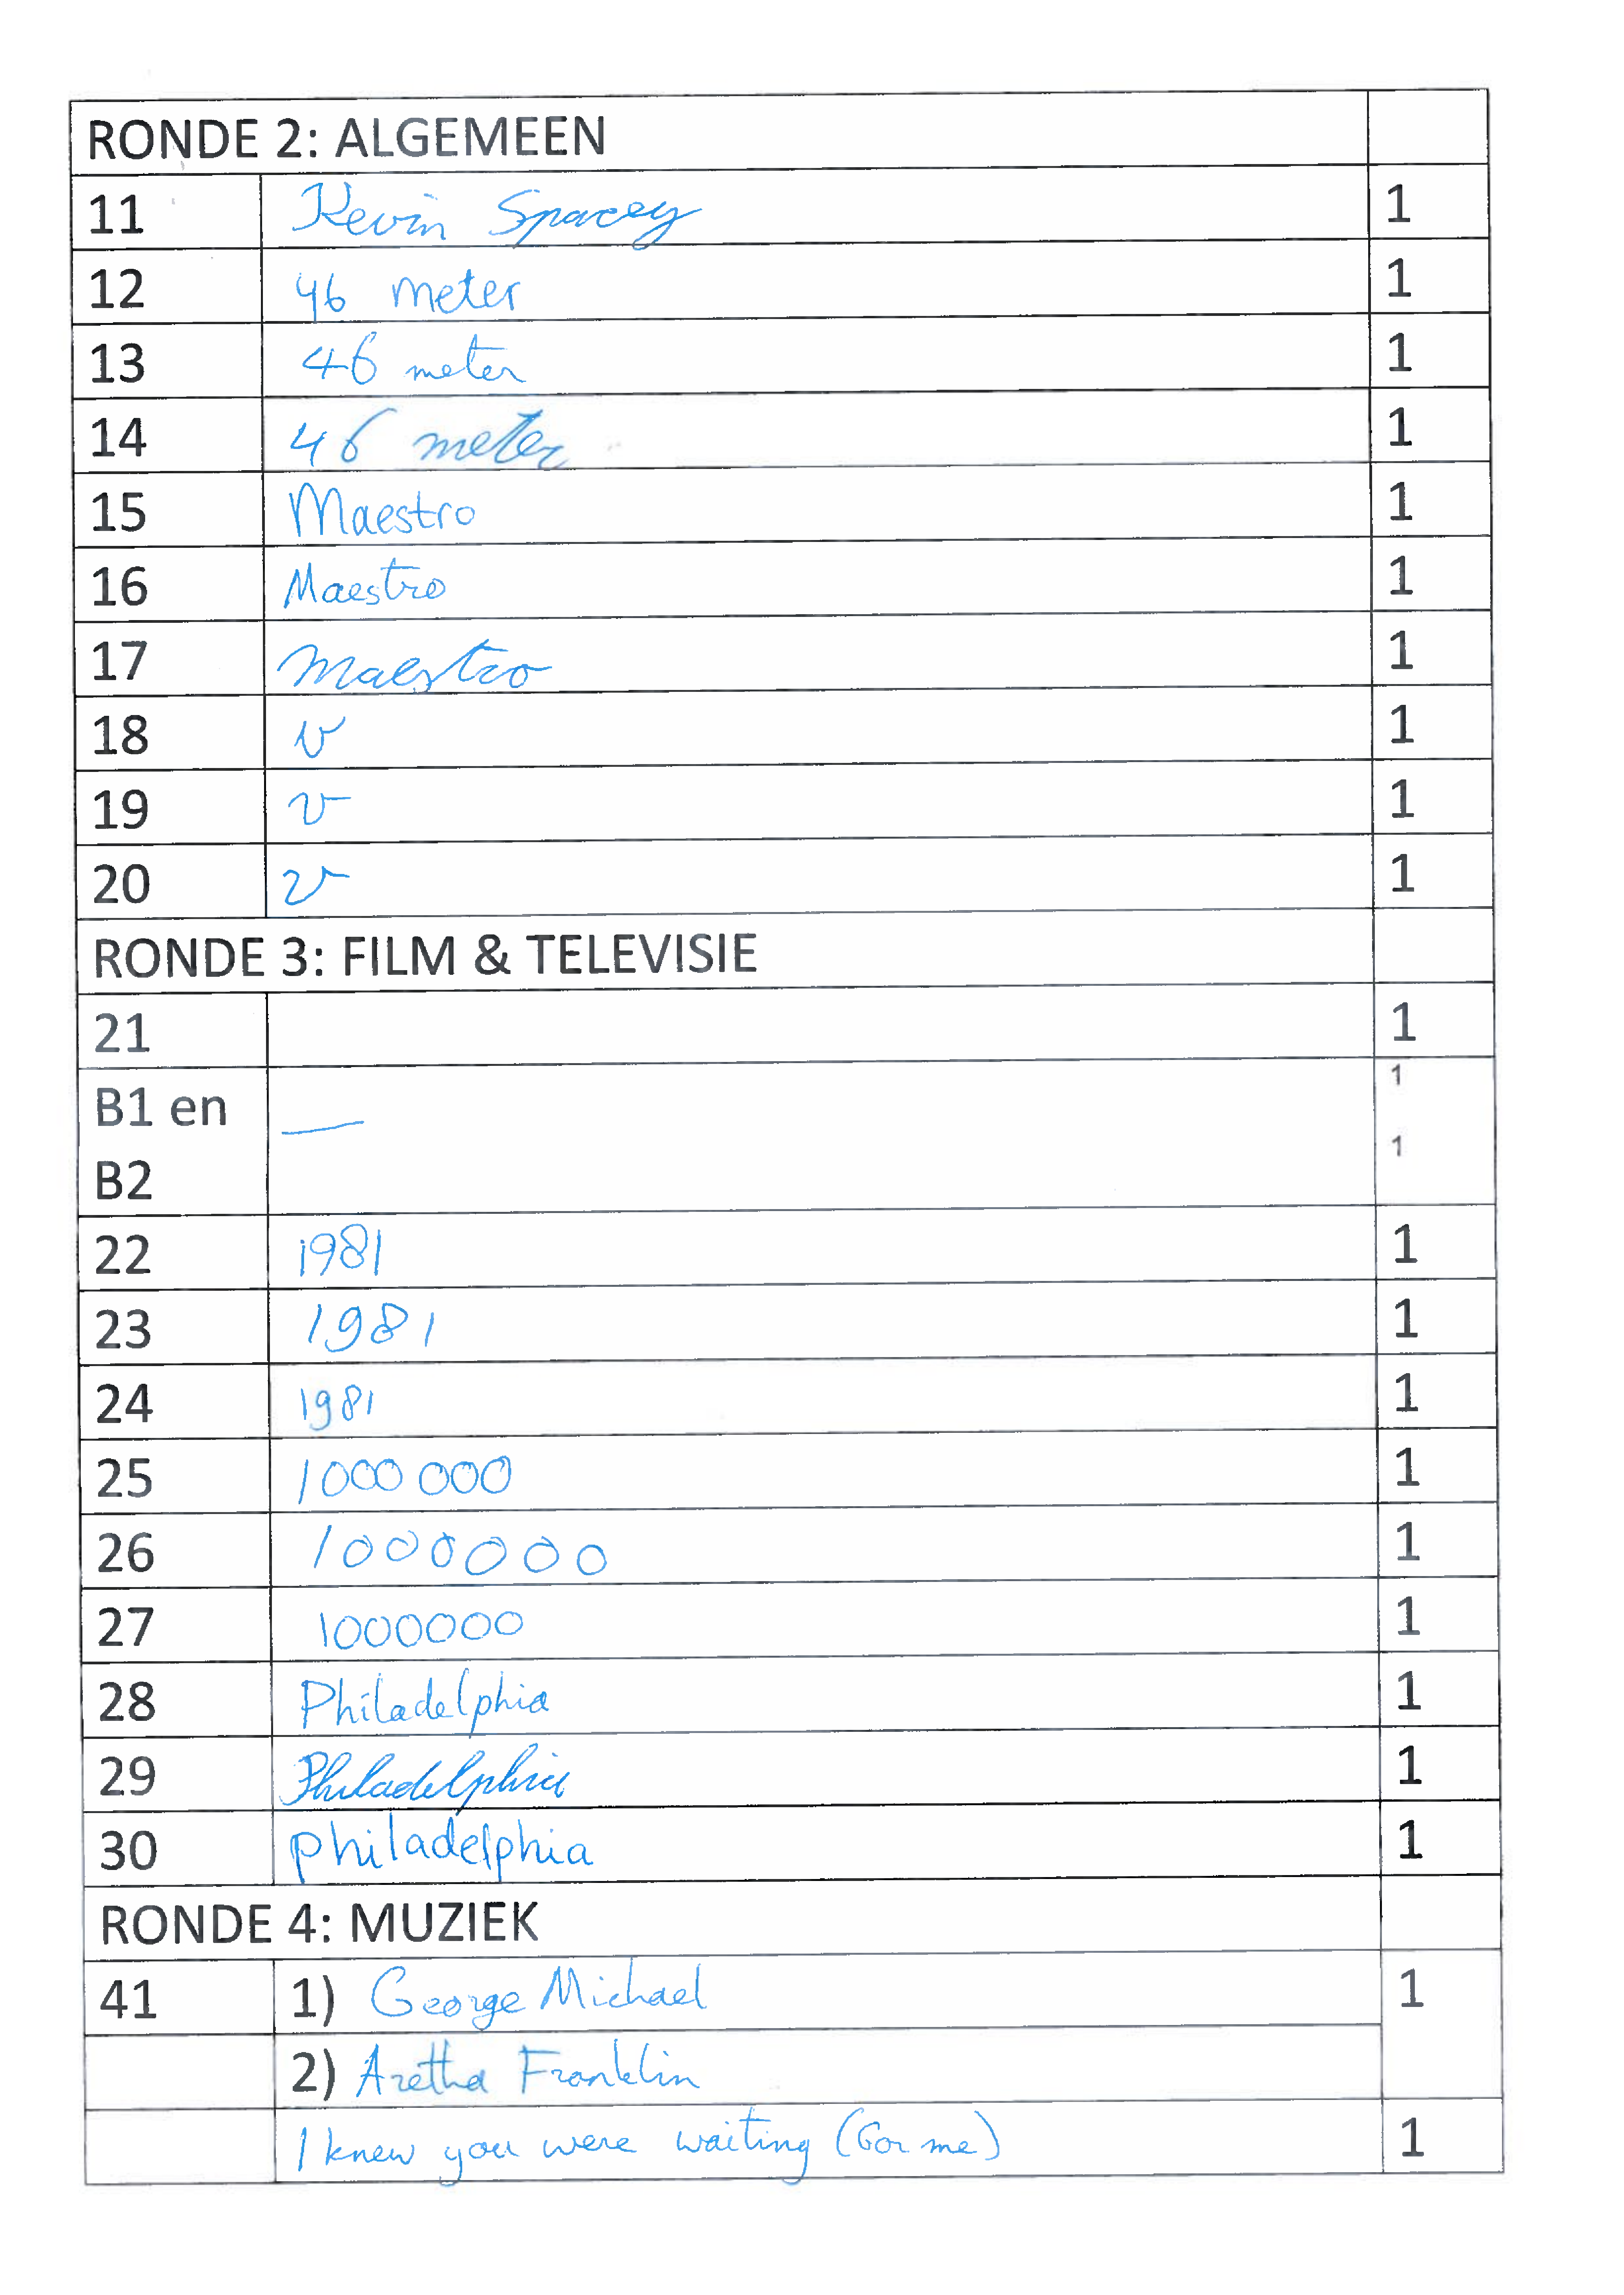 RONDE 2: ALGEMEEN
11 Kevin Spacey 1
12 46 meter 1
13 46 meter 1
14 46 meter 1
15 Maestro 1
16 Maestro 1
17 Maestro 1
18 v 1
19 v 1
20 v 1
RONDE 3: FILM & TELEVISIE
21 1
B1 en — 1
B2 1
22 1981 1
23 1981 1
24 1981 1
25 1000 000 1
26 1000000 1
27 1000000 1
28 Philadelphia 1
29 Philadelphia 1
30 philadelphia 1
RONDE 4: MUZIEK
41 1) George Michael 1
2) Aretha Franklin
I knew you were waiting (for me) 1